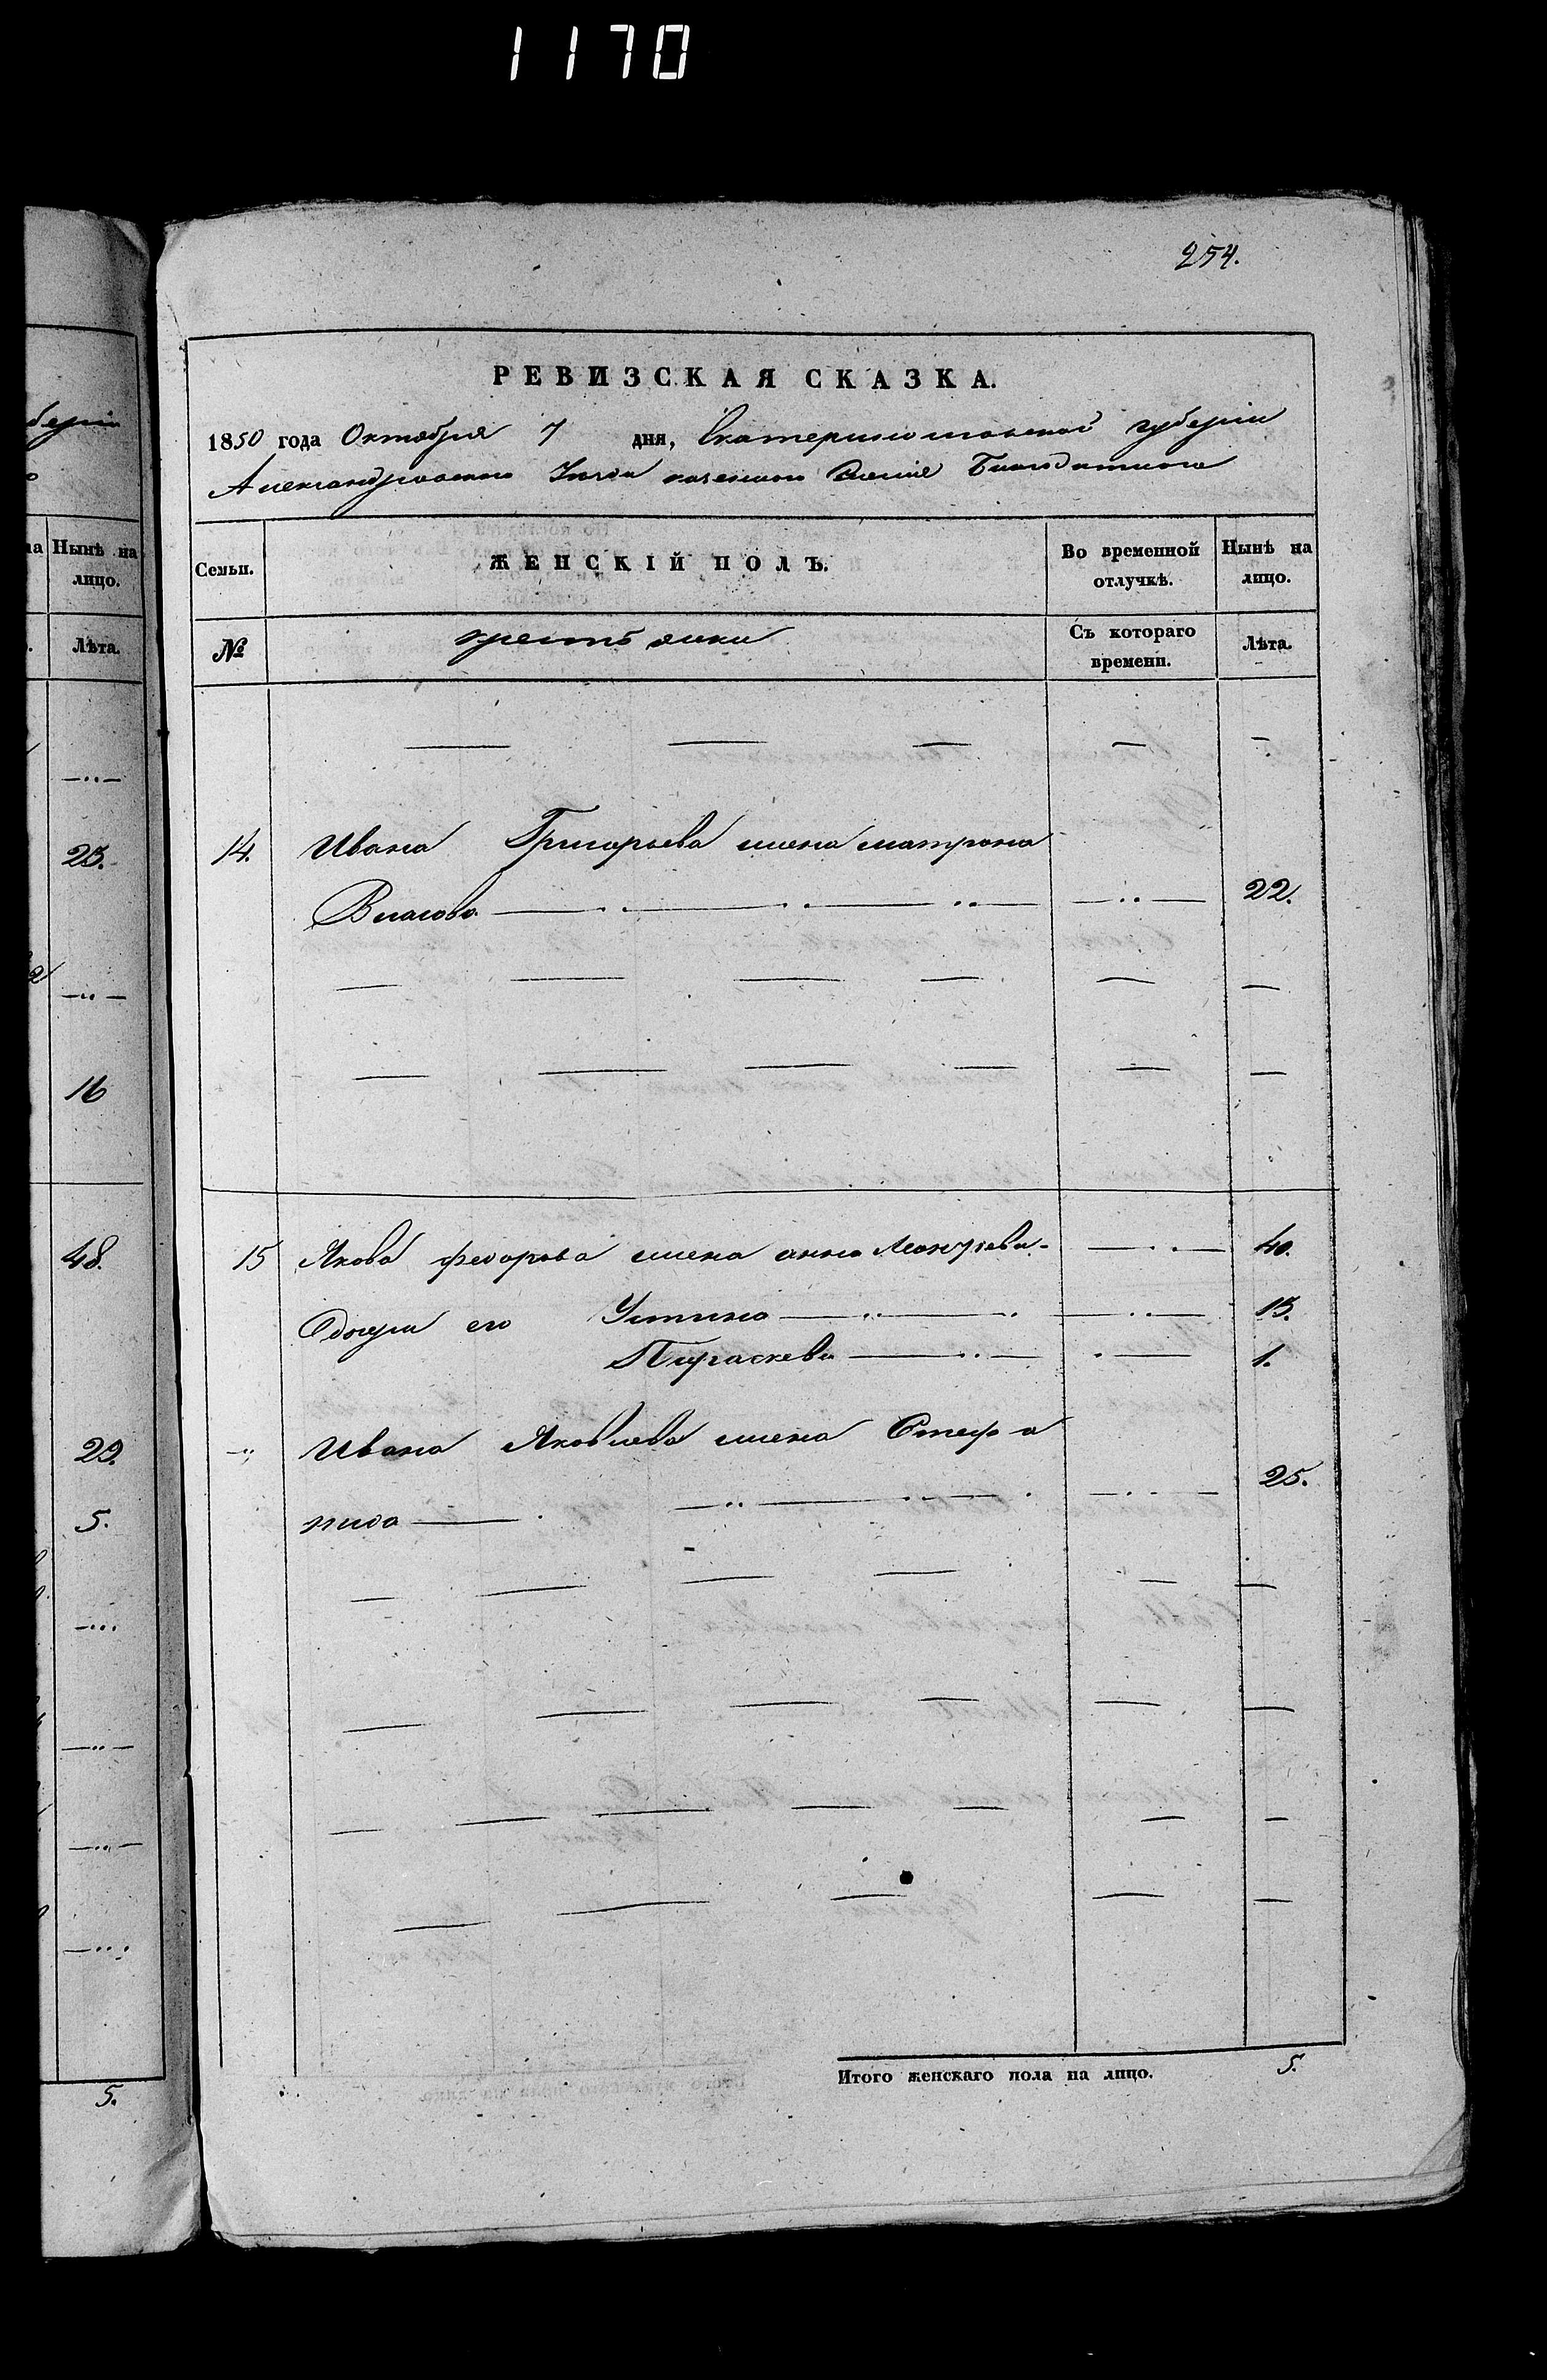 1170
254.
берніи
на Нынѣ на
лицо.
Лѣта.
23.
16
48.
29.
5.
5.
РЕВИЗСКАЯ СКАЗКА.
1850 года Октября 7 дня, Екатеринославской губерніи
Александровскаго Уезда казенного Селенія Благодатнаго
Семьи. ЖЕНСКІЙ ПОЛЪ. Во временной отлучкѣ. Нынѣ на лицо.
№ крестьянки Съ котораго времени. Лѣта.
14. Ивана Григорьева жена матрона
Власова 22.
15 Якова федорова жена анна Леонтьева 40.
Дочери его Устина 13.
Параскева 1.
Ивана Яковлева жена Стефа
нида 25.
Итого женскаго пола на лицо. 5.